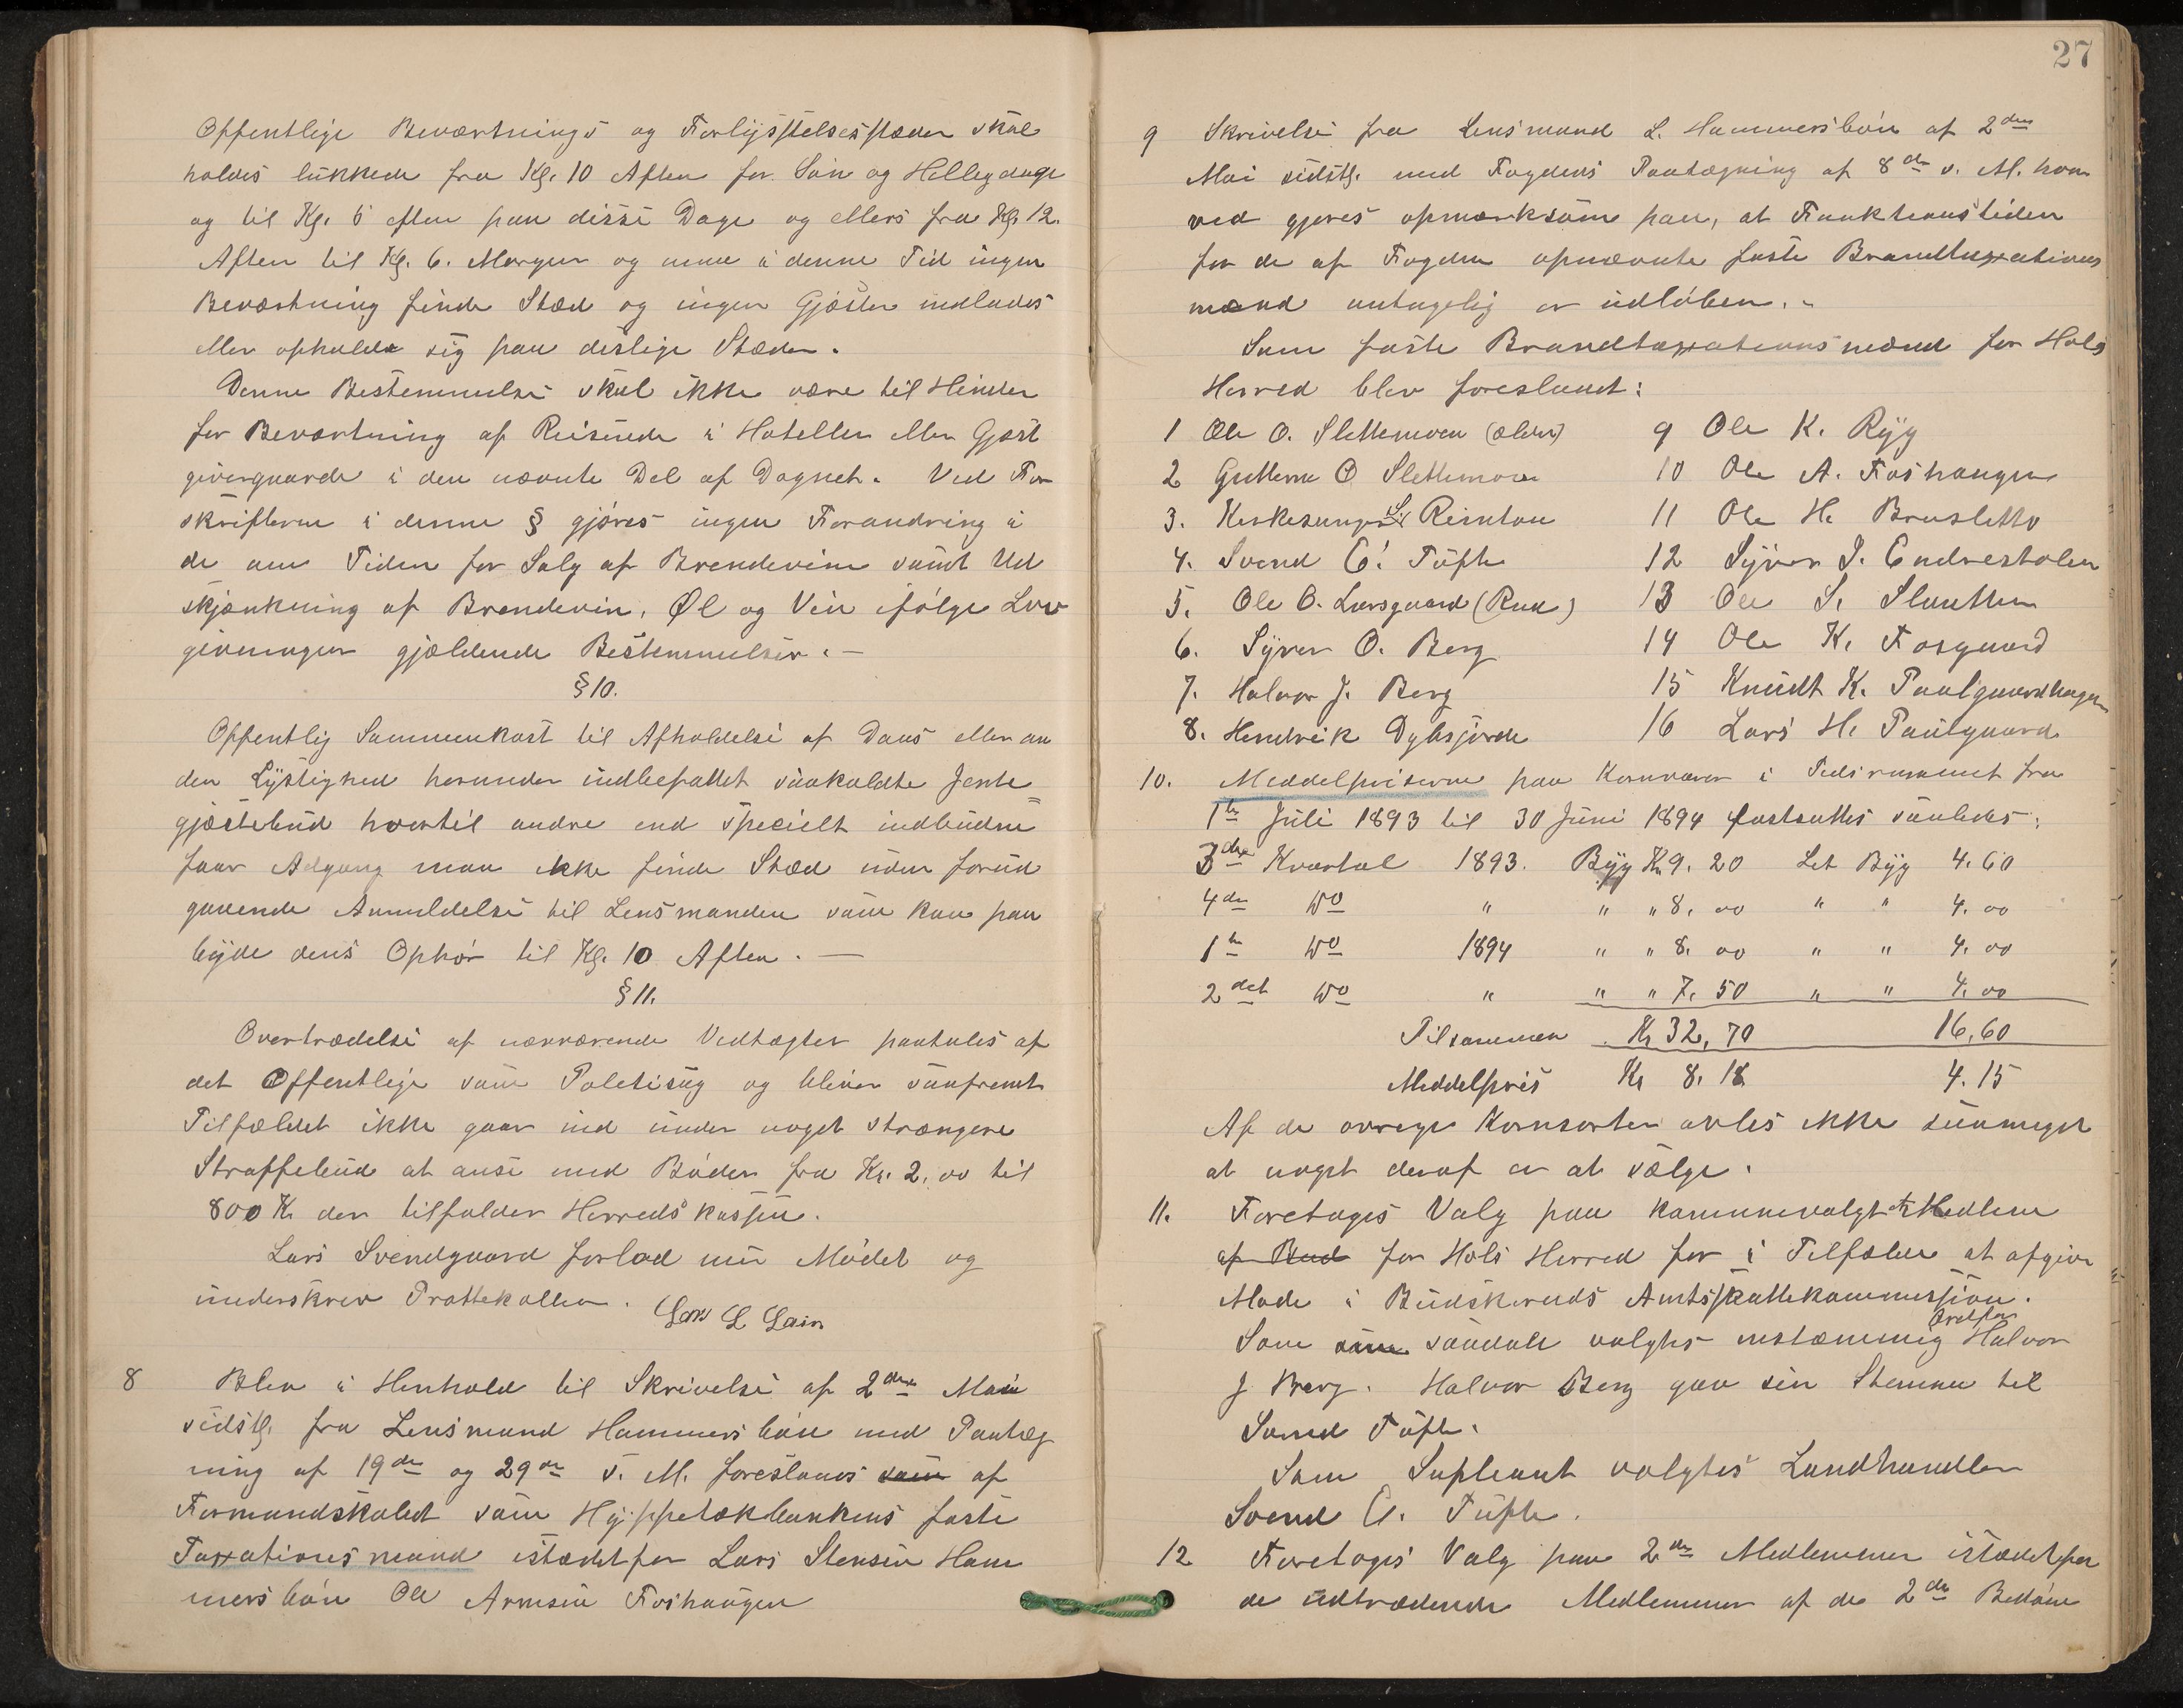 Offentlige Beværtnings og Forlystelsesstæder skal
holdes lukkede fra Kl. 10 Aften før Søn og Helligdage
og til Kl. 6 Aften paa disse Dage og ellers fra Kl. 12.
Aften til Kl. 6. Morgen og maa i denne Tid ingen
Beværtning finde Sted og ingen Gjæster indlades
eller opholde sig paa deslige Stæder.
Denne Bestemmelse skal ikke være til Hinder
for Beværtning af Reisende i Hoteller eller Gjæst
givergaarde i den nævnte Del af Døgnet. Ved For
skrifterne i denne § gjøres ingen Forandring i
de om Tiden for Salg af Brændevin samt Ud
skjænkning af Brændevin, Øl og Vin ifølge Lov
givningen gjældende Bestemmelser. —
§ 10.
Offentlig Sammenkost til Afholdelse af Dans eller an
den Lystighed herunder indbefattet saakaldte Jente
gjæstebud hvortil andre end specielt indbudne
faar Adgang maa ikke finde Stæd uden forud
gaaende Anmeldelse til Lensmanden som kan paa
byde dens Ophør til Kl. 10 Aften. —
§ 11.
Overtrædelse af nærværende Vedtægter paatales af
det Offentlige som Politisag og bliver saafremt
Tilfældet ikke gaar ind under noget strængere
Straffebud at anse med Bøder fra Kr. 2,00 til
800 Kr der tilfalder Herredskassen.
Lars Svendgaard forlod nu Mødet og
underskrev Prottekollen. Lars L
8 Blev i Henhold til Skrivelse af 2den Mai
sidstl. fra Lensmand Hammersbøn med Paateg
ning af 19de og 29de s. M. foreslaaes som af
Formandskabet som Hyppotekbankens faste
Taxationsmand istædetfor Lars Stensen Ham
mersbøn Ole Arnesen Foshaugen
27
9 Skrivelse fra Lensmand L. Hammersbøn af 2den
Mai sidstl. med Fogdens Paategning af 8de s. M. hvor
ved gjøres opmærksom paa, at Funktionstiden
for de af Fogden opnævnte faste Brandtaxations
mænd antagelig er udløben. -
Som faste Brandtaxationsmænd for Hols
Herred blev foreslaaet:
1 Ole O. Slettemoen (ældre) 9 Ole K. Ryg
2 Guttorm O Slettemoen 10 Ole A. Foshaugen
3. Kirkesanger S. Reinton 11 Ole H. Brusletto
4. Svend E. Tufte 12 Syver J. Endrestolen
5. Ole O. Larsgaard (Rud) 13 Ole S. Slaatten
6. Syver O. Berg 14 Ole K. Fosgaard
7. Halvor J. Berg 15 Knudt K. Paulgaardhagen
8. Hendrik Dybsjorde 16 Lars H. Paulgaard
10. Meddelpriserne paa Kornvarer i Tidsrummet fra
1ste Juli 1893 til 30 Juni 1894 fastsattes saaledes:
3die Kvartal 1893. Byg Kr 9. 20 Let Byg 4. 60
4de Do " " " 8. 00 " " 4. 00
1ste Do 1894 " " 8. 00 " " 4. 00
2det Do " " " 7. 50 " " 4. 00
Tilsammen Kr 32,70 16,60
Meddelpris Kr 8. 18 4. 15
Af de øvrige Kornsorter avles ikke saameget
at noget deraf er at sælge.
11. Foretages Valg paa kommunevalgt Medlem
af Bud for Hols Herred for i Tilfælde at afgive
Møde i Buskeruds Amtsskattekommission.
Som som saadan valgtes enstæmmig Ordfør Halvor
J Berg. Halvor Berg gav sin Stemme til
Svend Tufte.
Som Supleant valgtes Landhandler
Svend E. Tufte.
12 Foretoges Valg paa 2de Medlemmer istædetfor
de udtrædende Medlemmer af de 2de Bedøm